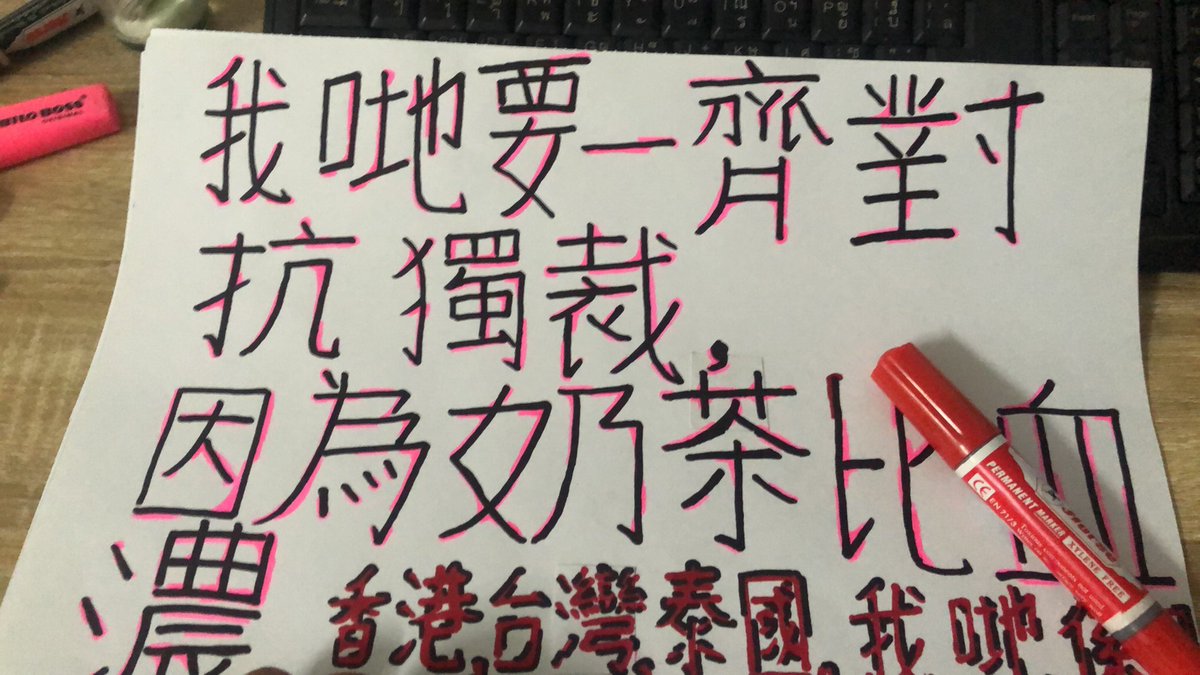 我哋要一齊對
抗獨裁,
因為奶茶比血
濃
香港,台灣,泰國,我哋係
STABILO BOSS
ORIGINAL
PERMANENT MARKER
XYLENE FREE
CE EN 71/3